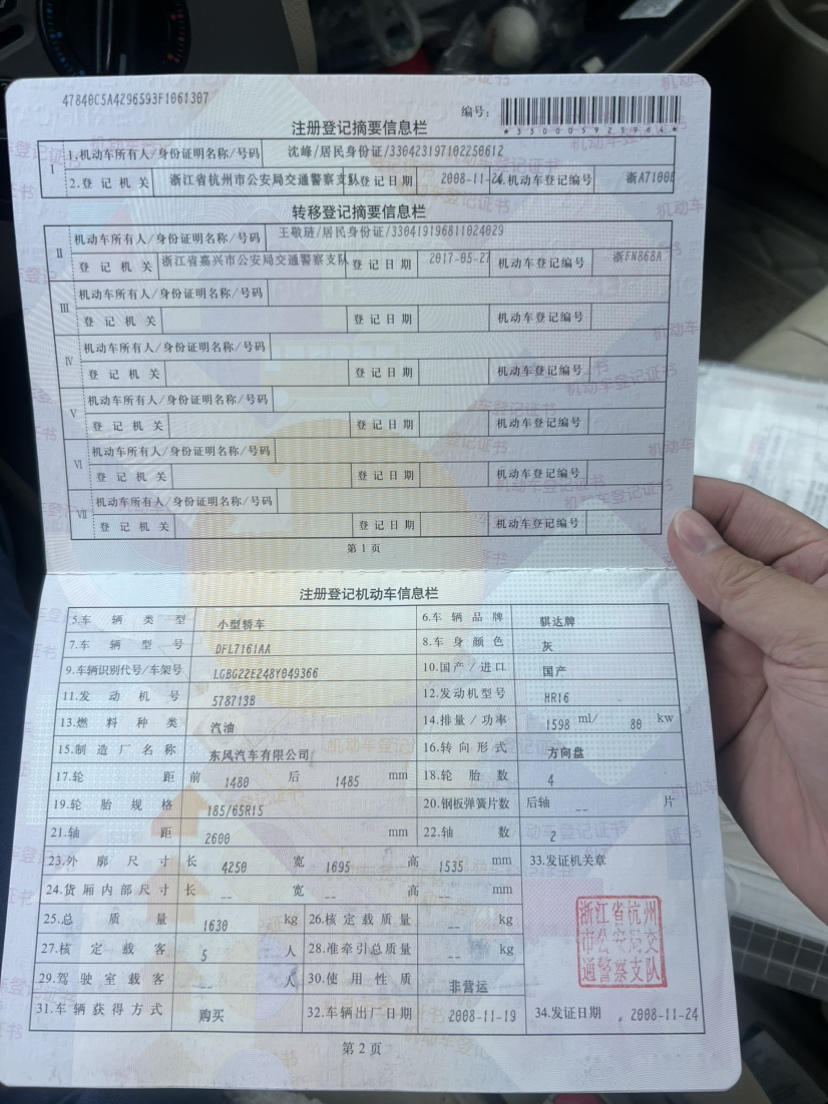 47840C5A4296593F1061307
编号:
*330005925964*
注册登记摘要信息栏
I 1.机动车所有人/身份证明名称/号码 沈峰/居民身份证/330423197102250612
2.登记机关 浙江省杭州市公安局交通警察支队 登记日期 2008-11-24 4.机动车登记编号 浙A71008
转移登记摘要信息栏
II 机动车所有人/身份证明名称/号码 王敬琏/居民身份证/330419196811024029
登记机关 浙江省嘉兴市公安局交通警察支队 登记日期 2017-05-27 机动车登记编号 浙FN868A
III 机动车所有人/身份证明名称/号码
登记机关 登记日期 机动车登记编号
IV 机动车所有人/身份证明名称/号码
登记机关 登记日期 机动车登记编号
V 机动车所有人/身份证明名称/号码
登记机关 登记日期 机动车登记编号
VI 机动车所有人/身份证明名称/号码
登记机关 登记日期 机动车登记编号
VII 机动车所有人/身份证明名称/号码
登记机关 登记日期 机动车登记编号
第1页
注册登记机动车信息栏
5.车辆类型 小型轿车 6.车辆品牌 骐达牌
7.车辆型号 DFL7161AA 8.车身颜色 灰
9.车辆识别代号/车架号 LGBG22E248Y049366 10.国产/进口 国产
11.发动机号 578713B 12.发动机型号 HR16
13.燃料种类 汽油 14.排量/功率 1598 ml/ 80 kw
15.制造厂名称 东风汽车有限公司 16.转向形式 方向盘
17.轮距 前 1480 后 1485 mm 18.轮胎数 4
19.轮胎规格 185/65R15 20.钢板弹簧片数 后轴 -- 片
21.轴距 2600 mm 22.轴数 2
23.外廓尺寸 长 4250 宽 1695 高 1535 mm 33.发证机关章
24.货厢内部尺寸 长 -- 宽 -- 高 -- mm
25.总质量 1630 kg 26.核定载质量 -- kg
27.核定载客 5 人 28.准牵引总质量 -- kg
29.驾驶室载客 -- 人 30.使用性质 非营运
浙江省杭州
市公安局交
通警察支队
31.车辆获得方式 购买 32.车辆出厂日期 2008-11-19 34.发证日期 2008-11-24
第2页